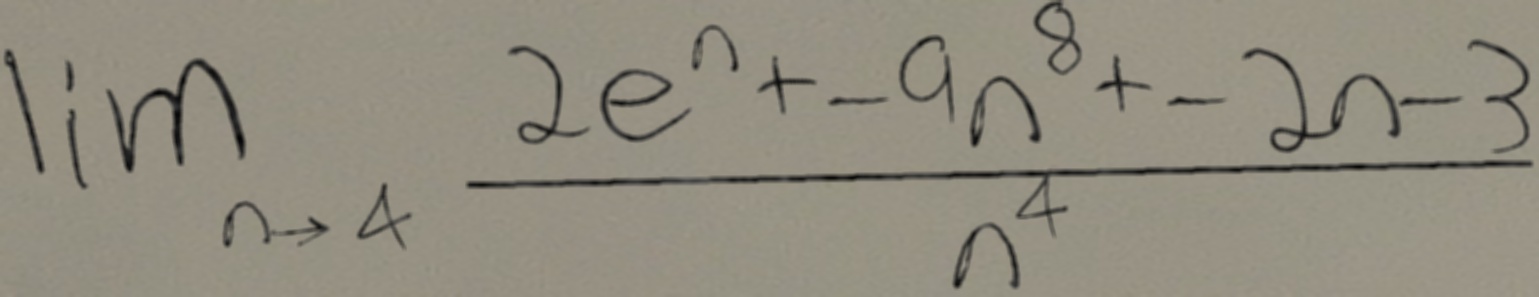 \lim_{n \to 4} \frac{2e^n + -9n^8 + -2n - 3}{n^4}